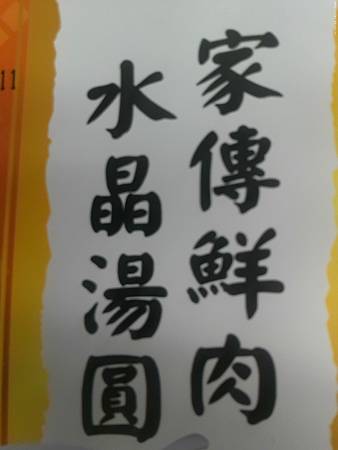 家傳鮮肉
水晶湯圓
11